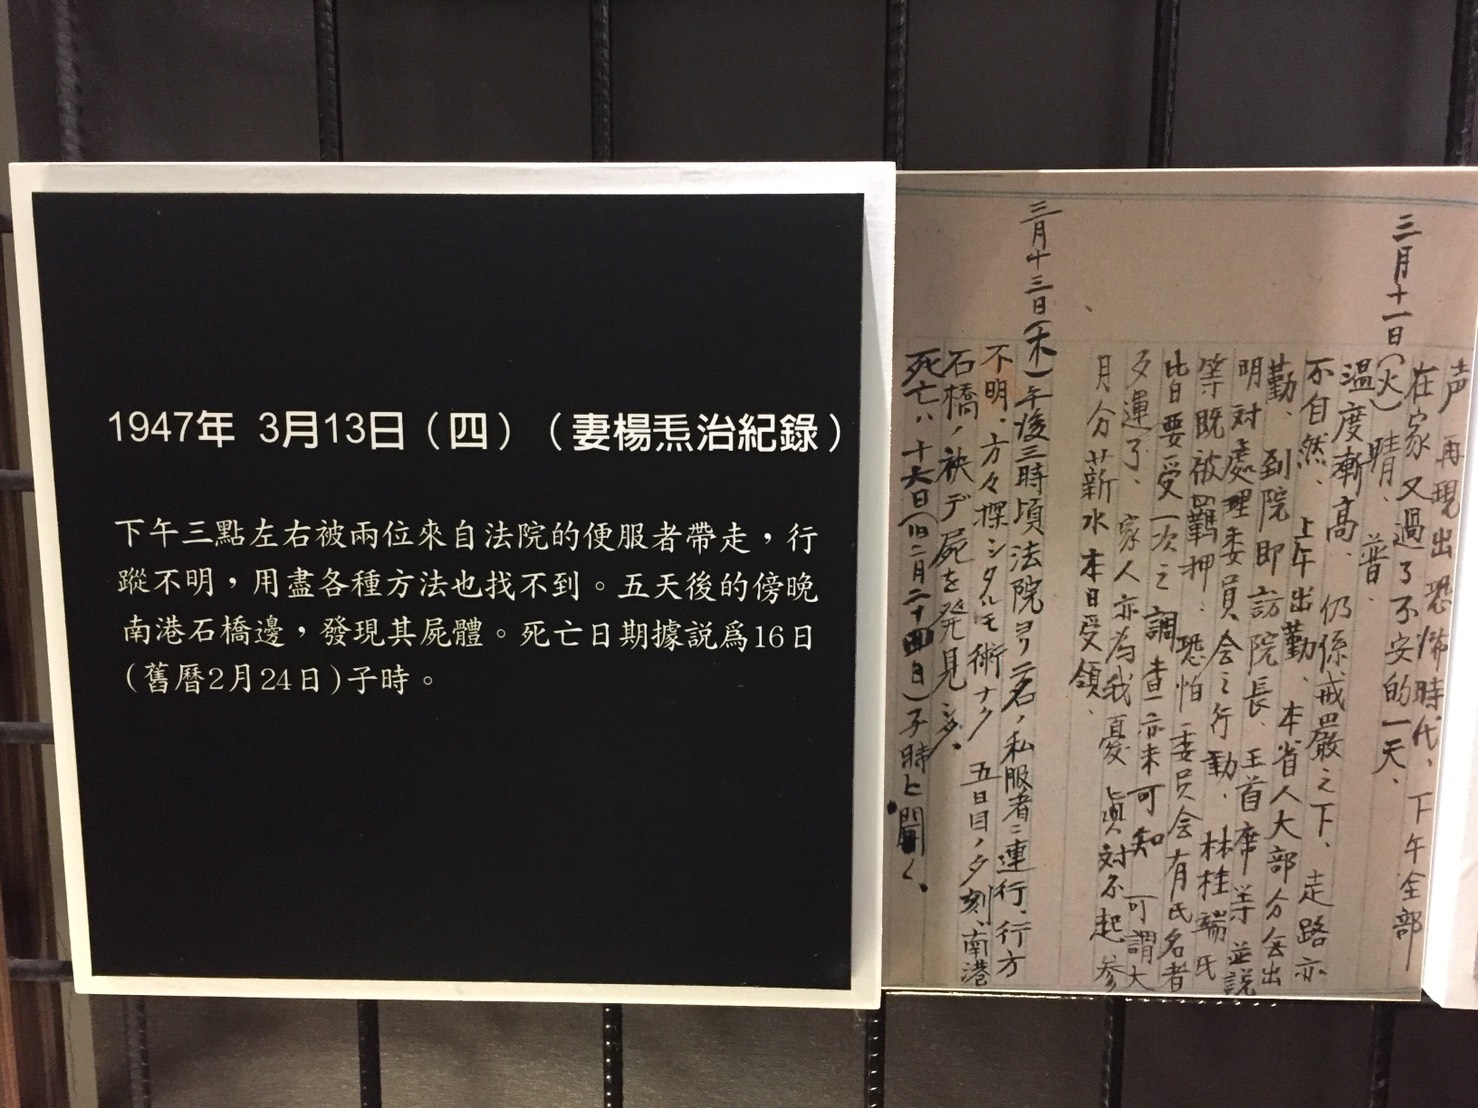 1947年 3月13日（四）（妻楊𤆬治紀錄）
下午三點左右被兩位來自法院的便服者帶走，行
蹤不明，用盡各種方法也找不到。五天後的傍晚
南港石橋邊，發現其屍體。死亡日期據説爲16日
(舊曆2月24日)子時。
声再現出恐怖時代、下午全部
在家又過了不安的一天、
三月十一日(火)晴、普、
温度漸高、仍係戒嚴之下、走路亦
不自然、上午出勤、本省人大部分会出
勤、到院即訪院長、王首席等並説
明対處理委員会之行動、林桂端氏
等既被羈押、恐怕委員会有氏名者
皆要受一次之調查亦未可知 可謂大
歹運了、家人亦為我憂 真対不起 参
月分薪水本日受領、
三月十三日(木)午後三時頃法院ヨリ二名ノ私服者ニ連行、行方
不明、方々探シタルモ術ナク 五日目ノ夕刻、南港
石橋ノ袂デ屍を発見シ
死亡ハ十六日(旧二月二十四日)子時ト聞く、